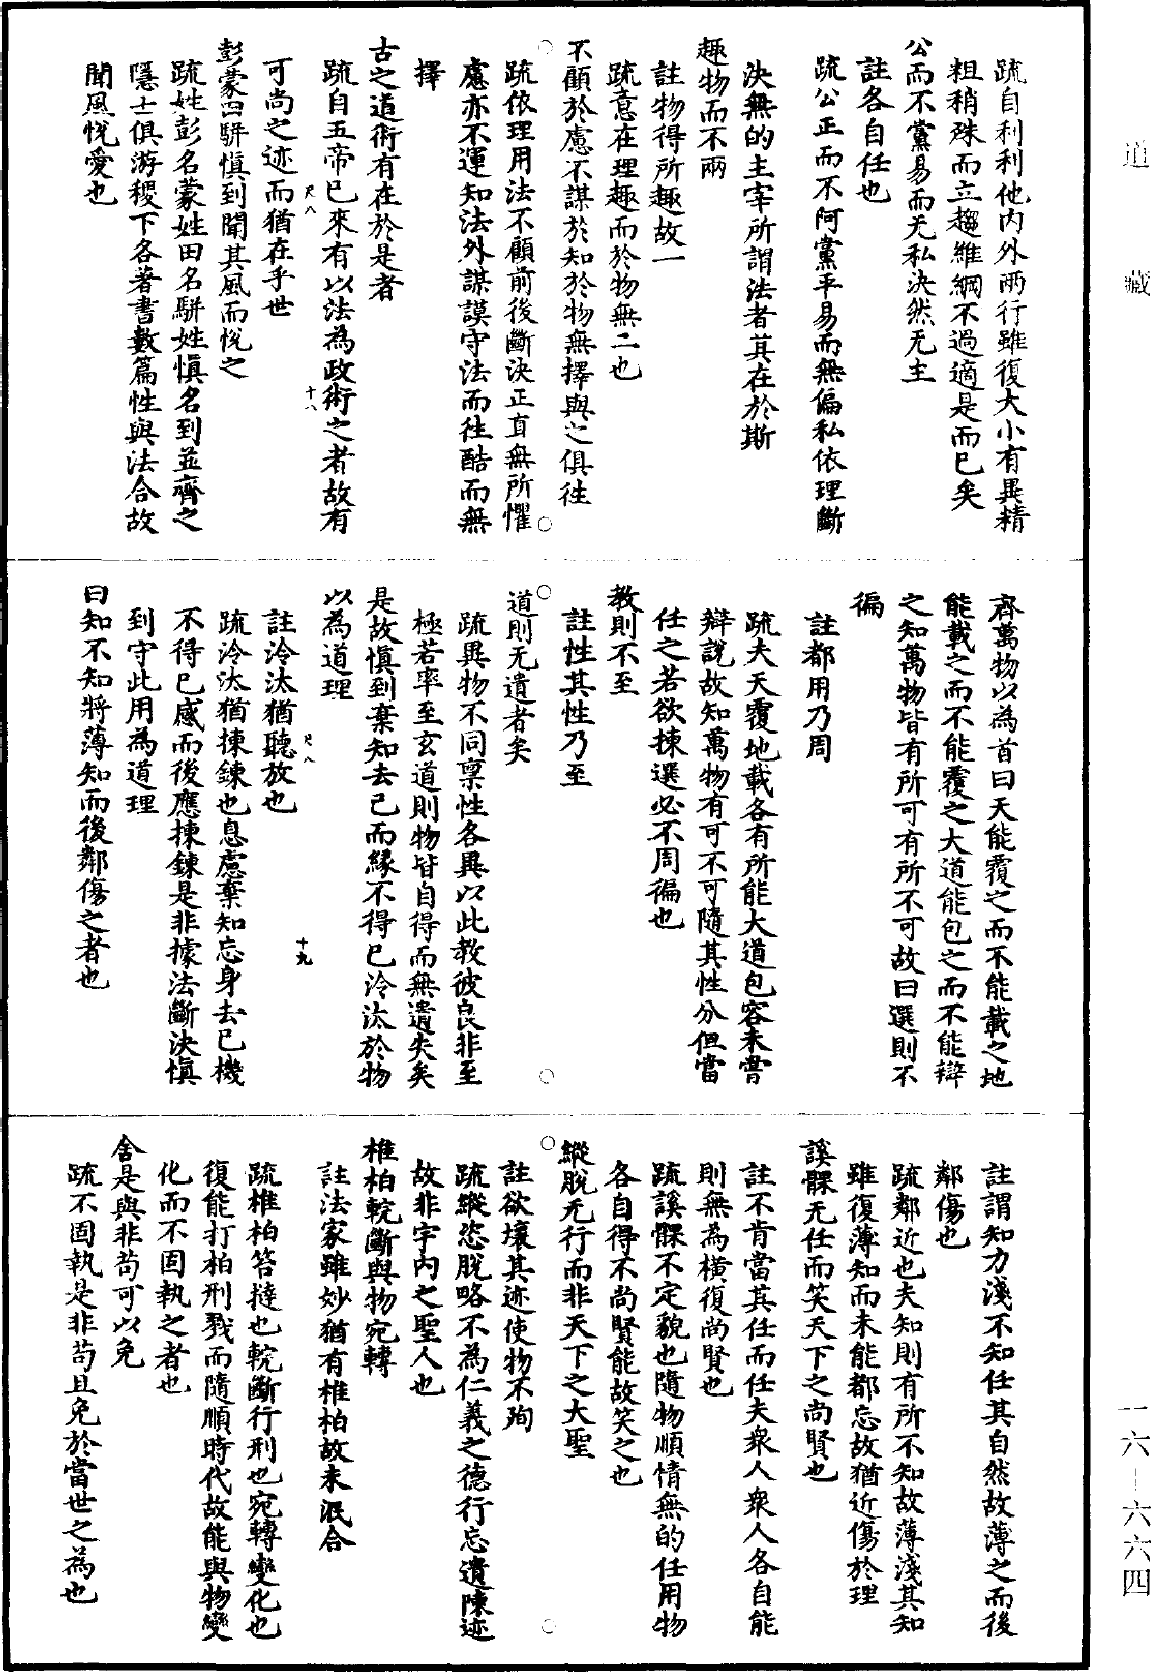 道藏
疏自利利他內外兩行雖復大小有異精
粗稍殊而立趨維綱不過適是而已矣
公而不黨易而无私決然无主
註各自任也
疏公正而不阿黨平易而無偏私依理斷
決無的主宰所謂法者其在於斯
趣物而不兩
註物得所趣故一
疏意在理趣而於物無二也
不顧於慮不謀於知於物無擇與之俱往
疏依理用法不顧前後斷決正直無所懼
慮亦不運知法外謀謨守法而往酷而無
擇
古之道術有在於是者
疏自五帝已來有以法為政術之者故有
可尚之迹而猶在乎世
尺八
十八
彭蒙田駢慎到聞其風而悅之
疏姓彭名蒙姓田名駢姓慎名到並齊之
隱士俱游稷下各著書數篇性與法合故
聞風悅愛也
齊萬物以為首曰天能覆之而不能載之地
能載之而不能覆之大道能包之而不能辯
之知萬物皆有所可有所不可故曰選則不
徧
註都用乃周
疏夫天覆地載各有所能大道包容未嘗
辯說故知萬物有可不可隨其性分但當
任之若欲揀選必不周徧也
教則不至
註性其性乃至
道則无遺者矣
疏異物不同稟性各異以此教彼良非至
極若率至玄道則物皆自得而無遺失矣
是故慎到棄知去己而緣不得已泠汰於物
以為道理
尺八
十九
註泠汰猶聽放也
疏泠汰猶揀鍊也息慮棄知忘身去己機
不得已感而後應揀鍊是非據法斷決慎
到守此用為道理
曰知不知將薄知而後鄰傷之者也
註謂知力淺不知任其自然故薄之而後
鄰傷也
疏鄰近也夫知則有所不知故薄淺其知
雖復薄知而未能都忘故猶近傷於理
謑髁无任而笑天下之尚賢也
註不肯當其任而任夫衆人衆人各自能
則無為橫復尚賢也
疏謑髁不定貌也隨物順情無的任用物
各自得不尚賢能故笑之也
縱脫无行而非天下之大聖
註欲壞其迹使物不殉
疏縱恣脫略不為仁義之德行忘遺陳迹
故非宇內之聖人也
椎柏輐斷與物宛轉
註法家雖妙猶有椎柏故未泯合
疏椎柏笞撻也輐斷行刑也宛轉變化也
復能打柏刑戮而隨順時代故能與物變
化而不固執之者也
舍是與非苟可以免
疏不固執是非苟且免於當世之為也
一六—六六四